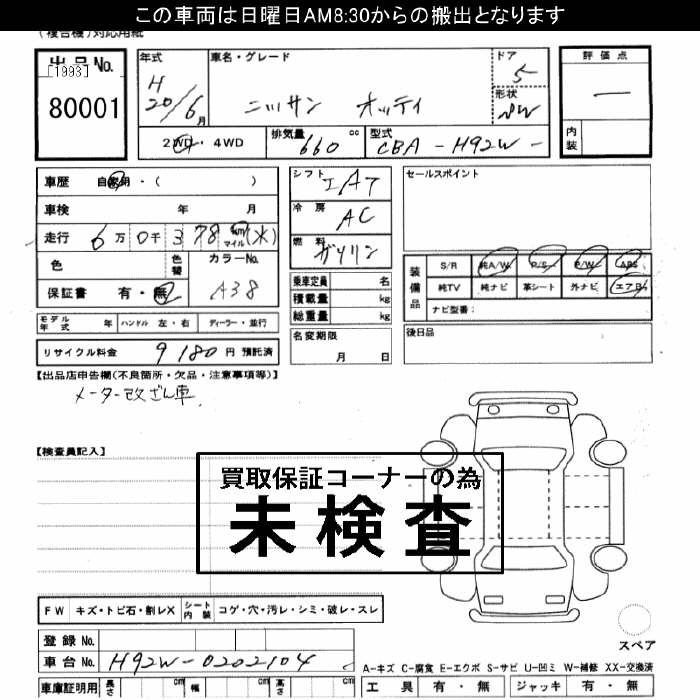 この車両は日曜日AM8:30からの搬出となります
(複合機)対応用紙
出品No.
[1993]
80001
年式
H
20/6月
車名・グレード
ニッサン オッティ
ドア
5
形状
評価点
ー
内装
2WD・4WD
排気量
660 cc
型式
CBA-H92W-
車歴 自家用・( )
車検 年 月
走行 6万0千378 km マイル (*)
色 色替
カラーNo.
A38
保証書 有・無
シフト IAT
冷房 AC
燃料 ガソリン
乗車定員 名
積載量 kg
総重量 kg
名変期限
月 日
セールスポイント
装備品
S/R 純A/W P/S P/W ABS
純TV 純ナビ 革シート 外ナビ エアB
ナビ型番:
後日品
モデル年式 年 ハンドル 左・右 ディーラー・並行
リサイクル料金 9180円 預託済
【出品店申告欄(不良箇所・欠品・注意事項等)】
メーター改ざん車
【検査員記入】
買取保証コーナーの為
未検査
FW キズ・トビ石・割レX シート内装 コゲ・穴・汚レ・シミ・破レ・スレ
登録No.
車台No. H92W-0202104
スペア
A-キズ C-腐食 E-エクボ S-サビ U-凹ミ W-補修 XX-交換済
車庫証明用 長さ cm 幅 cm 高さ cm
工具 有・無 ジャッキ 有・無